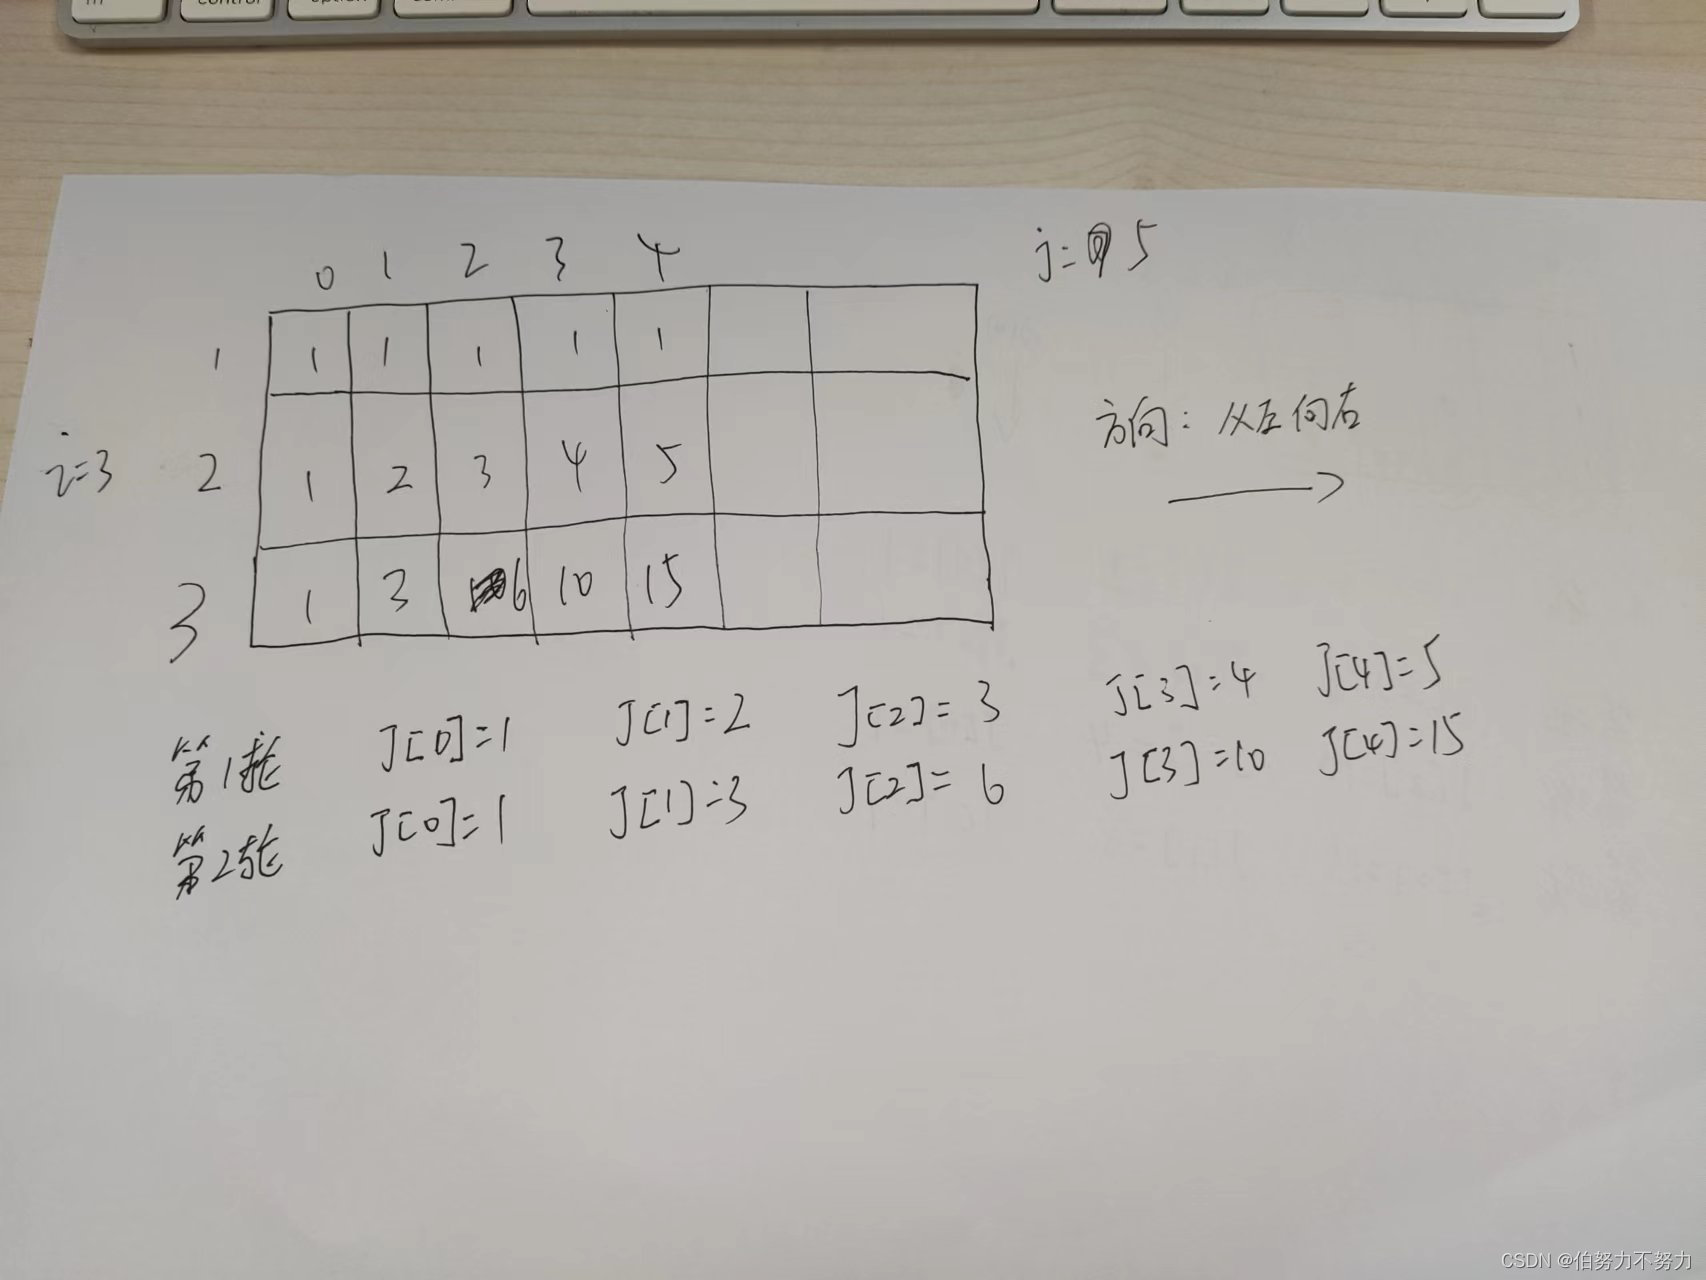 control option
0 1 2 3 4 j=5
1 1 1 1 1 1
方向：从左向右
i=3 2 1 2 3 4 5
3 1 3 6 10 15
第1轮 J[0]=1 J[1]=2 J[2]=3 J[3]=4 J[4]=5
第2轮 J[0]=1 J[1]=3 J[2]=6 J[3]=10 J[4]=15
CSDN @伯努力不努力